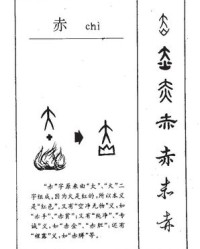 赤 chi
“赤”字原来由“大”、“火”二
字组成。因为火是红的，所以本义
是“红色”。又有“空净无物”义，如
“赤手”、“赤贫”；又有“纯净”、“专
诚”义，如“赤金”、“赤胆”；还有
“裸露”义，如赤膊等。
赤
赤